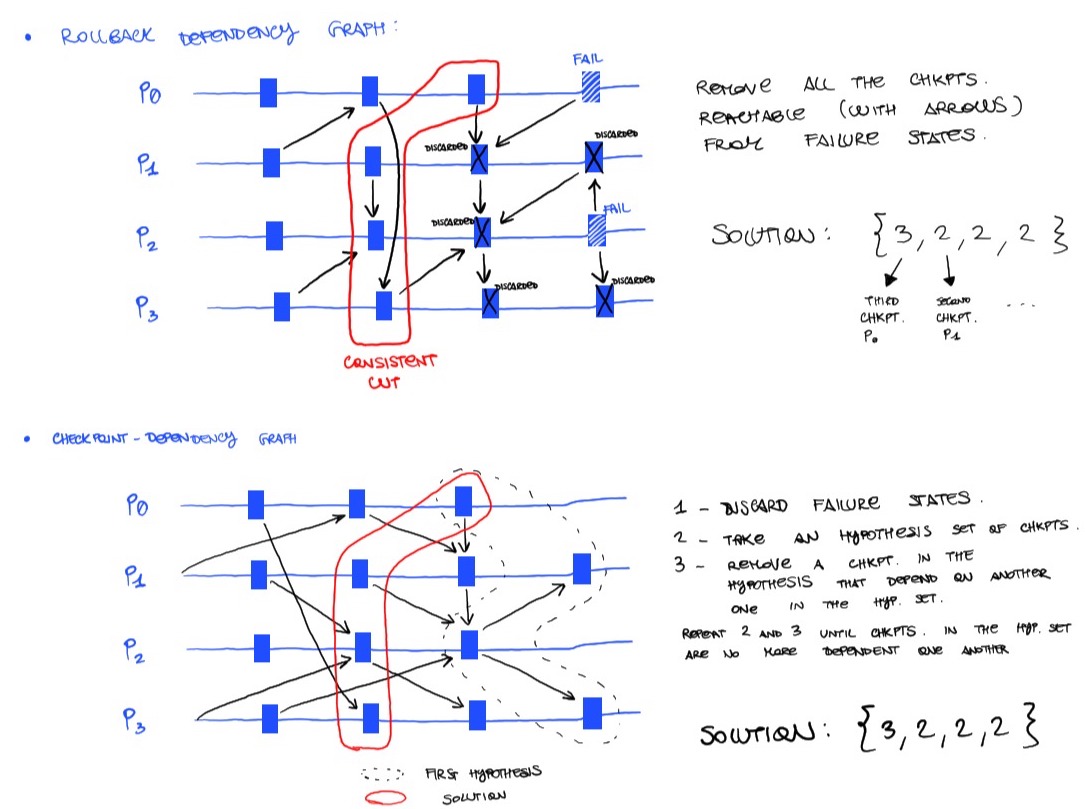 • ROLLBACK DEPENDENCY GRAPH:
FAIL
P0
P1
P2
P3
DISCARDED
DISCARDED
DISCARDED
FAIL
DISCARDED
DISCARDED
CONSISTENT
CUT
REMOVE ALL THE CHKPTS.
REACHABLE (WITH ARROWS)
FROM FAILURE STATES.
SOLUTION: {3, 2, 2, 2}
THIRD
CHKPT.
P0
SECOND
CHKPT.
P1
...
• CHECKPOINT-DEPENDENCY GRAPH
P0
P1
P2
P3
FIRST HYPOTHESIS
SOLUTION
1 - DISCARD FAILURE STATES.
2 - TAKE AN HYPOTHESIS SET OF CHKPTS.
3 - REMOVE A CHKPT. IN THE
HYPOTHESIS THAT DEPEND ON ANOTHER
ONE IN THE HYP. SET.
REPEAT 2 AND 3 UNTIL CHKPTS. IN THE HYP. SET
ARE NO MORE DEPENDENT ONE ANOTHER
SOLUTION: {3, 2, 2, 2}